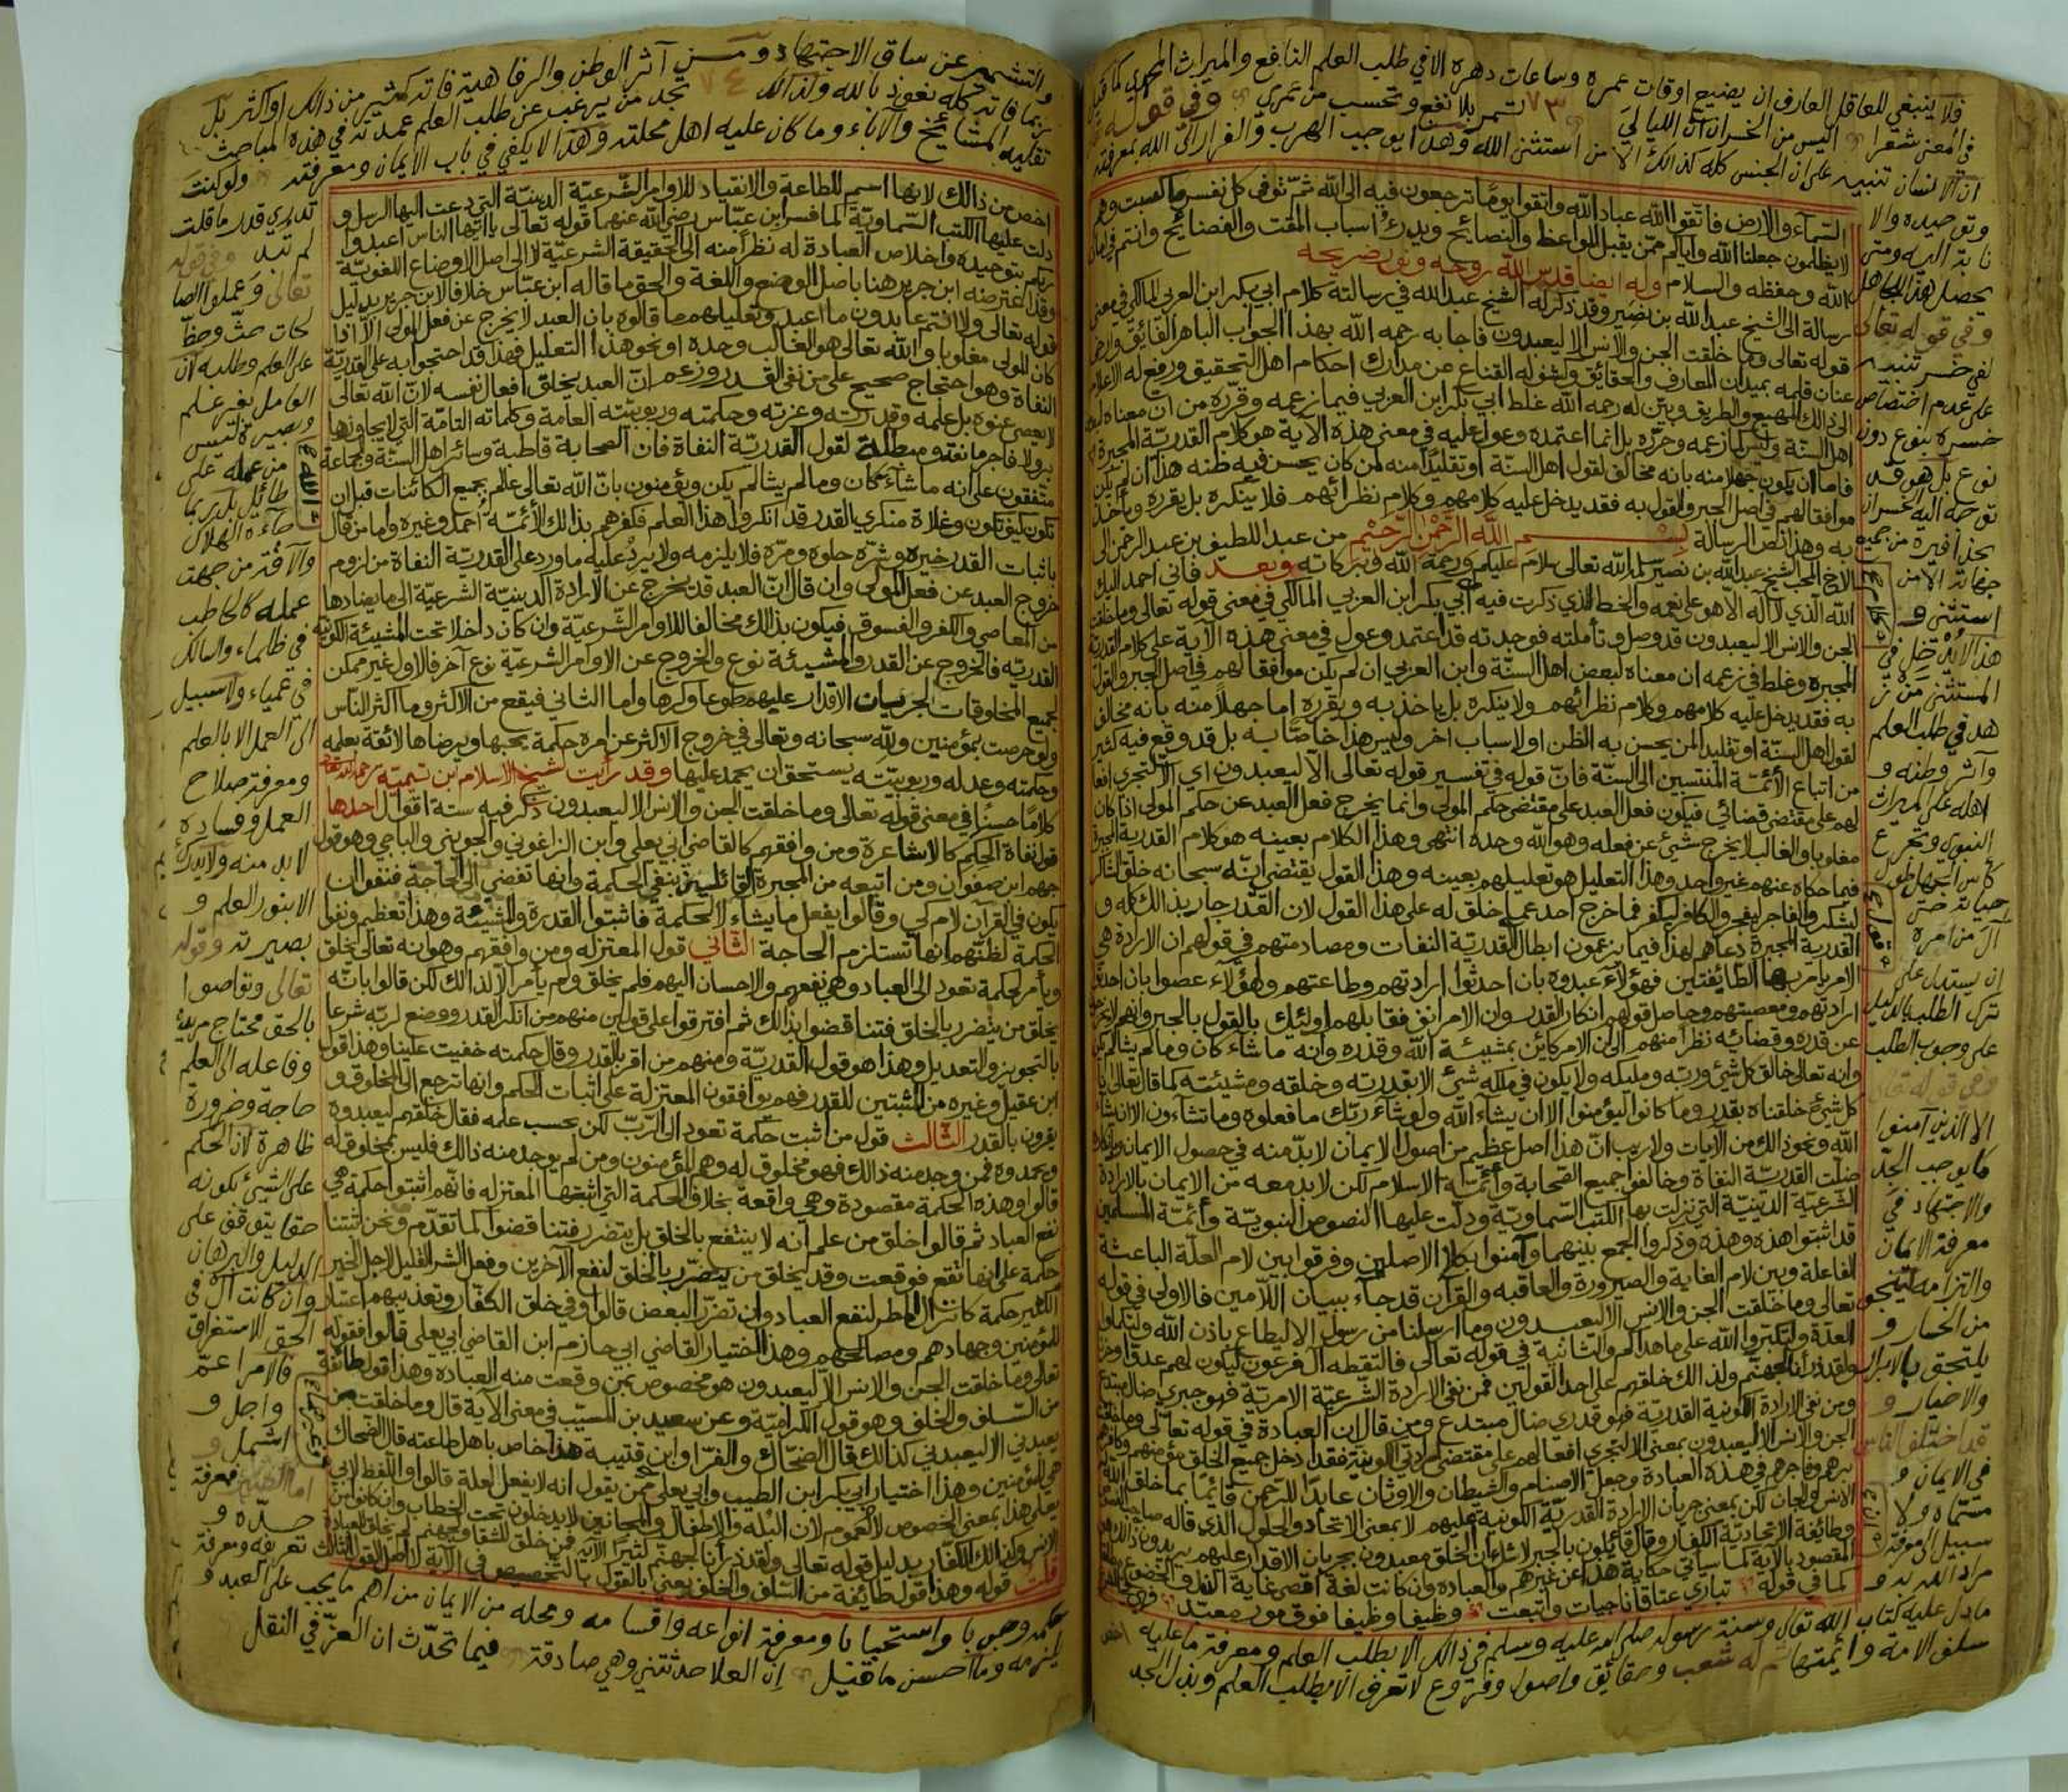 فلا ينبغي للعاقل العارف ان يضيع اوقات عمره وساعات دهره الا في طلب العلم النافع والميراث المحمدي كما قيل
في المعنى شعرا اليس من الخسران ان الليالي ٧٣ تمر بلا نفع وتحسب من عمري وفي قوله
ان الانسان تنبيه على ان الجنس كله كذالك الا من استثنى الله وهذا يوجب الهرب والفرار الى الله بمعرفته
السماء والارض فاتقوا الله عباد الله واتقوا يوما ترجعون فيه الى الله ثم توفى كل نفس ما كسبت وهم
لا يظلمون جعلنا الله واياكم ممن يقبل المواعظ والنصائح ويدرء اسباب المقت والفضائح وانتم في امان
الله وحفظه والسلام وله ايضا قدس الله روحه ونور ضريحه
رسالة الى الشيخ عبد الله بن نصير وقد ذكر له الشيخ عبد الله في رسالته كلام ابي بكر ابن العربي المالكي في معنى
قوله تعالى وما خلقت الجن والانس الا ليعبدون فاجابه رحمه الله بهذا الجواب الباهر الفائق
عنان قلمه بميدان المعارف والحقائق وكشف له القناع عن مدارك احكام اهل التحقيق ورفع له الاعلام
الى ذالك المهيع والطريق وبين له رحمه الله غلط ابي بكر ابن العربي فيما زعمه وقرره من ان معناه
اهل السنة وليس كما زعمه وحرره بل انما اعتمده وعول عليه في معنى هذه الآية هو كلام القدرية المجبرة
فاما ان يكون جهلا منه بانه مخالف لقول اهل السنة او تقليدا منه لمن كان يحسن فيه ظنه هذا ان لم يكن
موافقا لهم في اصل الجبر والقول به فقد يدخل عليه كلامهم وكلام نظرائهم فلا ينكره بل يقرره وياخذ
به وهذا نص الرسالة بسم الله الرحمن الرحيم من عبد اللطيف بن عبد الرحمن الى
الاخ المحب الشيخ عبد الله بن نصير سلمه الله تعالى سلام عليكم ورحمة الله وبركاته وبعد فاني احمد اليك
الله الذي لا اله الا هو على نعمه والخط الذي ذكرت فيه عن ابي بكر ابن العربي المالكي في معنى قوله تعالى وما خلقت
الجن والانس الا ليعبدون قد وصل وتأملته فوجدته قد اعتمد وعول في معنى هذه الآية على كلام القدرية
المجبرة وغلط في زعمه ان معناه لبعض اهل السنة وابن العربي ان لم يكن موافقا لهم في اصل الجبر والقول
به فقد يدخل عليه كلامهم وكلام نظرائهم ولا ينكره بل ياخذ به ويقرره اما جهلا منه بانه مخالف
لقول اهل السنة او تقليدا لمن يحسن به الظن او لاسباب اخر وليس هذا خاصا به بل قد وقع فيه كثير
من اتباع الأئمة المنتسبين الى السنة فان قوله في تفسير قوله تعالى الا ليعبدون اي الا لتجري افعا
لهم على مقتضى قضائي فيكون فعل العبد على مقتضى حكم المولى وانما يخرج فعل العبد عن حكم المولى اذا كان
مغلوبا والغالب لا يخرج شيئ عن فعله وهو الله وحده انتهى وهذا الكلام بعينه هو كلام القدرية المجبرة
فيما حكاه عنهم غير واحد وهذا التعليل هو تعليلهم بعينه وهذا القول يقتضي انه سبحانه خلق الشاكر
ليشكر والفاجر ليفجر والكافر ليكفر فما خرج احد عما خلق له على هذا القول لان القدر جار بذالك كله و
القدرية المجبرة دعاهم لهذا فيما يزعمون ابطال القدرية النفات ومصادمتهم في قولهم ان الارادة هي
الامر يامر بها الطايفتين فهؤلاء عبدوه بان احدثوا ارادتهم وطاعتهم وهؤلاء عصوا بان احدثوا
ارادتهم ومعصيتهم وحاصل قولهم انكار القدر وان الامر انف فقابلهم اولئك بالقول بالجبر
عن قدره وقضائه نظرا منهم الى ان الامر كائن بمشيئة الله وقدره وانه ما شاء كان وما لم يشا لم يكن
وانه تعالى خالق كل شئ وربه ومليكه ولا يكون في ملكه شئ الا بقدرته وخلقه ومشيئته كما قال تعالى
كل شيئ خلقناه بقدر وما كانوا ليؤمنوا الا ان يشاء الله ولو شاء ربك ما فعلوه وما تشاءون الا ان يشاء
الله ونحو ذالك من الآيات ولا ريب ان هذا اصل عظيم من اصول الايمان لا بد منه في حصول الايمان
ضلت القدرية النفاة وخالفوا جميع الصحابة وأئمة الاسلام لكن لا بد معه من الايمان بالارادة
الشرعية الدينية التي نزلت بها الكتب السماوية ودلت عليها النصوص النبوية وأئمة المسلمين
قد اثبتوا هذه وهذه وذكروا الجمع بينهما وآمنوا بكلا الاصلين وفرقوا بين لام العلة الباعثة
الفاعلة وبين لام الغاية والصيرورة والعاقبه والقرآن قد جاء ببيان اللامين فالاولى في قوله
تعالى وما خلقت الجن والانس الا ليعبدون وما ارسلنا من رسول الا ليطاع باذن الله ولتكملوا
العدة ولتكبروا الله على ما هداكم والثانية في قوله تعالى فالتقطه آل فرعون ليكون لهم عدوا
ولقد ذرأنا لجهنم ولذالك خلقهم على احد القولين فمن نفى الارادة الشرعية الامرية فهو جبري ضال مبتدع
ومن نفى الارادة الكونية القدرية فهو قدري ضال مبتدع ومن قال ان العبادة في قوله تعالى وما خلقت
الجن والانس الا ليعبدون بمعنى الا لتجري افعالهم على مقتضى ارادتي الكونية فقد ادخل جميع الخلق مؤمنهم وكافرهم
برهم وفاجرهم في هذه العبادة وجعل الاصنام والشيطان والاوثان عابدا للرحمن قائما بما خلق
الانس والجان لكن بمعنى جريان الارادة القدرية الكونية عليهم لا بمعنى الاتحاد والحلول الذي قاله
وطائفة الاتحادية الكفار وقال قائلون بالجبر لا شك ان الخلق معبدون بجريان الاقدار عليهم
المقصود بالآية كما سيأتي حكاية هذا عن غيرهم والعبادة وان كانت لغة اقصى غاية الذل والخضوع
كما في قوله تباري عتاقا ناجيات واتبعت وظيفا وظيفا فوق مور معبد
وتوحيده والا
نابة اليه ومتى
يحصل هذا للجاهل
وفي قوله تعالى
لفي خسر تنبيه
على عدم اختصاص
خسره بنوع دون
نوع بل هو قد
توجه اليه الخسران
بحذافيره من جميع
جهاته الا من
استثنى و
هذا لا يدخل في
المستثنى من ز
هد في طلب العلم
وآثر وطنه و
اهله على الميراث
النبوي وتجرع
كأس الجهل طول
حياته حتى
آل من امره
ان يستدل على
ترك الطلب بالدليل
على وجوب الطلب
وفي قوله تعالى
الا الذين آمنوا
ما يوجب الجد
والاجتهاد في
معرفة الايمان
والتزامه لينجو
من الخسار و
يلتحق بالابرار
والاخيار و
قد اختلف الناس
في الايمان و
مسماه ولا
سبيل الى معرفة
مراد الله به و
ما دل عليه كتاب الله تعالى وسنة رسوله صلى الله عليه وسلم في ذالك الا بطلب العلم ومعرفة ما عليه
سلف الامة وأئمتها ثم له شعب وحقائق واصول وفروع لا تعرف الا بطلب العلم وبذل الجد
والتشمير عن ساق الاجتهاد ومن آثر الوطن والرفاهية فاته كثير من ذالك او اكثر بل
ربما فاته كله نعوذ بالله ولذالك ٧٤ تجد من يرغب عن طلب العلم عمدته في هذه المباحث
تقليد المشايخ والاباء وما كان عليه اهل محلته وهذا لا يكفي في باب الايمان ومعرفته ولو كنت
اخص من ذالك لانها اسم للطاعة والانقياد للاوامر الشرعية الدينية التي دعت اليها الرسل و
دلت عليها الكتب السماوية كما فسر ابن عباس رضي الله عنهما قوله تعالى يا ايها الناس اعبدوا
ربكم بتوحيده واخلاص العبادة له نظرا منه الى الحقيقة الشرعية لا الى اصل الاوضاع اللغوية
وقد اعترضه ابن جرير هنا باصل الوضع واللغة والحق ما قاله ابن عباس خلافا لابن جرير بدليل
قوله تعالى ولا انتم عابدون ما اعبد وتعليلهم ما قالوه بان العبد لا يخرج عن فعل المولى الا اذا
كان المولى مغلوبا والله تعالى هو الغالب وحده او نحو هذا التعليل فهذا قد احتجوا به على القدرية
النفاة وهو احتجاج صحيح على من نفى القدر وزعم ان العبد يخلق افعال نفسه لان الله تعالى
لا يعصى عنوة بل بعلمه وقدرته وعزته وحكمته وربوبيته العامة وكلماته التامة التي لا يجاوزها
بر ولا فاجر مانعة ومبطلة لقول القدرية النفاة فان الصحابة قاطبة وسائر اهل السنة والجماعة
متفقون على انه ما شاء كان وما لم يشا لم يكن ويؤمنون بان الله تعالى عالم بجميع الكائنات قبل ان
تكون كيف تكون وغلاة منكري القدر قد انكروا هذا العلم فكفرهم بذالك الأئمة احمد وغيره واما من قال
باثبات القدر خيره وشره حلوه ومره فلا يلزمه ولا يرد عليه ما ورد على القدرية النفاة من لزوم
خروج العبد عن فعل المولى وان قال ان العبد قد يخرج عن الارادة الدينية الشرعية الى ما يضادها
من المعاصي والكفر والفسوق فيكون بذالك مخالفا للاوامر الشرعية وان كان داخلا تحت المشيئة الكونية
القدريه فالخروج عن القدر والمشيئة نوع والخروج عن الاوامر الشرعية نوع آخر فالاول غير ممكن
لجميع المخلوقات لجريان الاقدار عليهم طوعا وكرها واما الثاني فيقع من الاكثر وما اكثر الناس
ولو حرصت بمؤمنين ولله سبحانه وتعالى في خروج الاكثر عن امره حكمة يحبها ويرضاها لائقة بعلمه
وحكمته وعدله وربوبيته يستحق ان يحمد عليها وقد رأيت لشيخ الاسلام ابن تيمية رحمه الله تعالى
كلاما حسنا في معنى قوله تعالى وما خلقت الجن والانس الا ليعبدون ذكر فيه ستة اقوال احدها
قول نفاة الحكم كالاشاعرة ومن وافقهم كالقاضي ابي يعلى وابن الزاغوني والجويني والباجي وهو قول
جهم ابن صفوان ومن اتبعه من المجبرة القائلين بنفي الحكمة وانها تفضي الى الحاجة فنفوا ان
يكون في القرآن لام كي وقالوا يفعل ما يشاء لا لحكمة فاثبتوا القدرة والمشيئة وهذا تعظيم ونفوا
الحكمة لظنهم انها تستلزم الحاجة الثاني قول المعتزله ومن وافقهم وهو انه تعالى يخلق
ويأمر لحكمة تعود الى العباد وهي نفعهم والاحسان اليهم فلم يخلق ولم يأمر الا لذالك لكن قالوا بانه
يخلق من يتضرر بالخلق فتناقضوا بذالك ثم افترقوا على قولين منهم من انكر القدر ووضع لربه شرعا
بالتجويز والتعديل وهذا هو قول القدرية ومنهم من اقر بالقدر وقال حكمته خفيت علينا وهذا قول
ابن عقيل وغيره من المثبتين للقدر فهم يوافقون المعتزلة على اثبات الحكم وانها ترجع الى المخلوق و
يقرون بالقدر الثالث قول من اثبت حكمة تعود الى الرب لكن بحسب علمه فقال خلقهم ليعبدوه
ويحمدوه فمن وجد منه ذالك فهو مخلوق له وهم المؤمنون ومن لم يوجد منه ذالك فليس بمخلوق له
قالوا وهذه الحكمة مقصودة وهي واقعة بخلاف الحكمة التي اثبتها المعتزله فانهم اثبتوا حكمة هي
نفع العباد ثم قالوا خلق من علم انه لا ينتفع بالخلق بل يتضرر فتناقضوا كما تقدم ونحن اثبتنا
حكمة علم انها تقع فوقعت وقد يخلق من يتضرر بالخلق لنفع الآخرين وفعل الشر القليل لاجل الخير
الكثير حكمة كانزال المطر لنفع العباد وان تضرر البعض قالوا وفي خلق الكفار وتعذيبهم اعتبار
للمؤمنين وجهادهم ومصالحهم وهذا اختيار القاضي ابي حازم ابن القاضي ابي يعلى قالوا فقوله
تعالى وما خلقت الجن والانس الا ليعبدون هو مخصوص بمن وقعت منه العبادة وهذا قول طائفة
من السلف والخلف وهو قول الكرامية وعن سعيد بن المسيب في معنى الآية قال وما خلقت من
يعبدني الا ليعبدني كذالك قال الضحاك والفرا وابن قتيبة هذا خاص باهل طاعته قال الضحاك
هي للمؤمنين وهذا اختيار ابي بكر ابن الطيب وابي يعلى ممن يقول انه لا يفعل لعلة قالوا واللفظ لابي
يعلى هذا بمعنى الخصوص لا العموم لان البله والاطفال والمجانين لا يدخلون تحت الخطاب وان كانوا من
الانس وكذالك الكفار بدليل قوله تعالى ولقد ذرأنا لجهنم كثيرا الآية فمن خلق للشقا ولجهنم لم يخلق للعبادة
قلت قوله وهذا قول طائفة من السلف والخلف يعني بالقول بالتخصيص في الآية لا اصل القول الثالث
تدري قدر ما قلت
لم تبد وفي قوله
تعالى وعملوا الصا
لحات حث وحظ
على العلم وطلبه لان
العامل بغير علم
وبصيرة ليس
من عمله على
طائل بل ربما
جاءه الهلاك
والآفة من جهت
عمله كالحاطب
في ظلماء والسالك
في عمياء ولا سبيل
الى العمل الا بالعلم
ومعرفة صلاح
العمل وفساده
لا بد منه ولا يدرك
الا بنور العلم و
بصيرته وقوله
تعالى وتواصوا
بالحق محتاج مريده
وفاعله الى العلم
حاجة وضرورة
ظاهرة لان الحكم
على الشيئ بكونه
حقا يتوقف على
الدليل والبرهان
وان كانت ال في
الحق للاستغراق
فالامر اعم
واجل و
اشمل و
معرفة
حده و
تعريفه ومعرفة
حكمه وجوبا واستحبابا ومعرفة انواعه واقسامه ومحله من الايمان من اهم ما يجب على العبد و
يلزمه وما احسن ما قيل ان العلا حدثتني وهي صادقة فيما تحدث ان العز في النقل